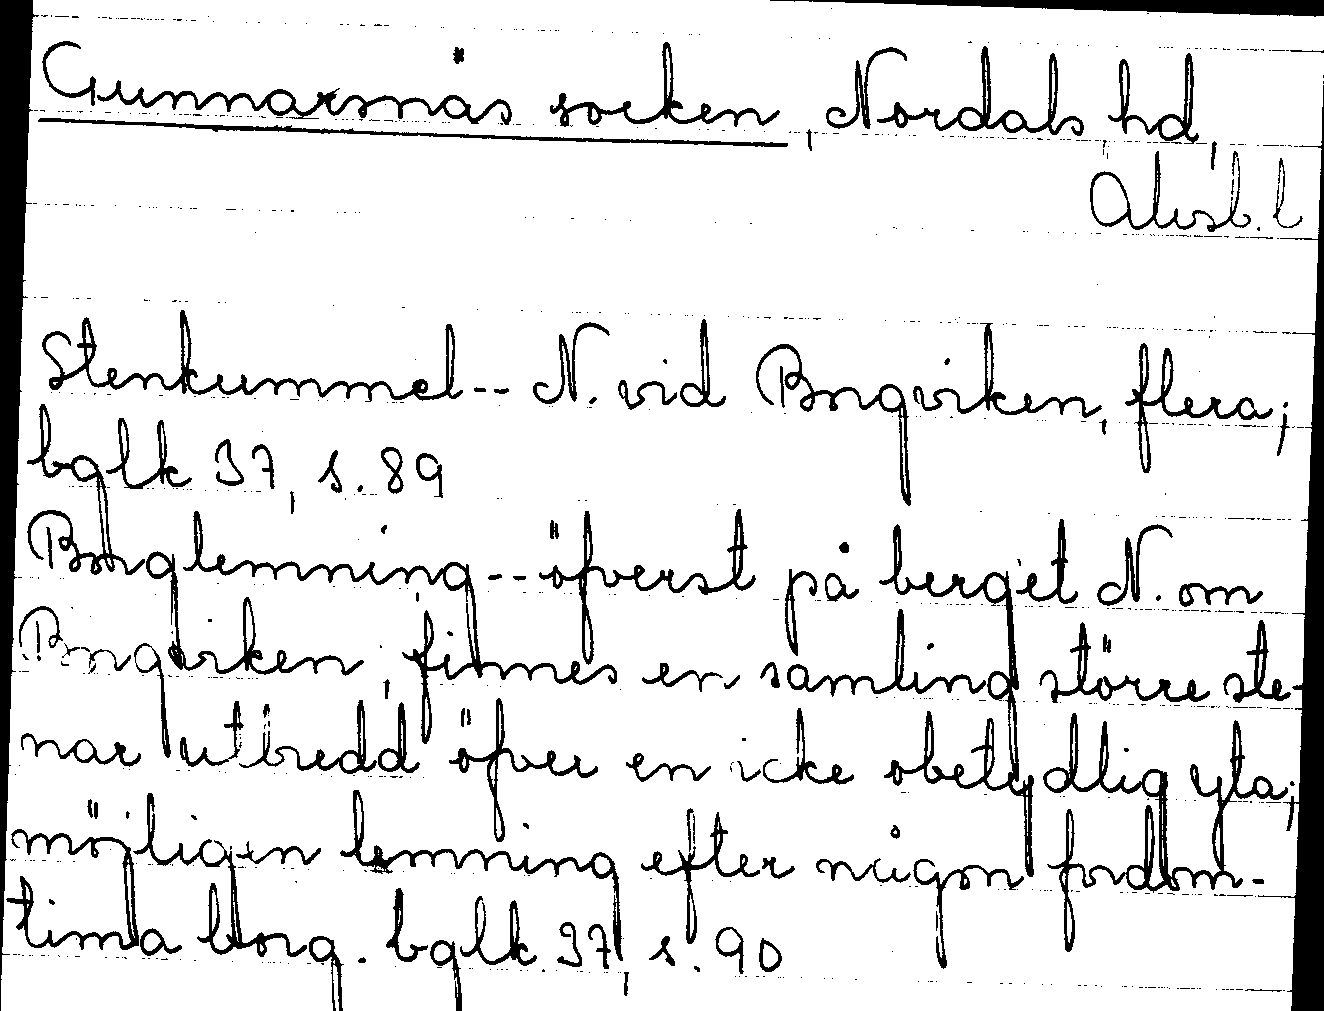 Gunnarsnäs socken, Nordals hd,
Älvsb. l
Stenkummel -- N. vid Borgviken, flera;
bglk 37, s. 89
Borglemning -- öfverst på berget N. om
Borgviken, finnes en samling större ste-
nar utbredd öfver en icke obetydlig yta;
möjligen lemning efter någon fordom-
tima borg. bglk 37, s. 90